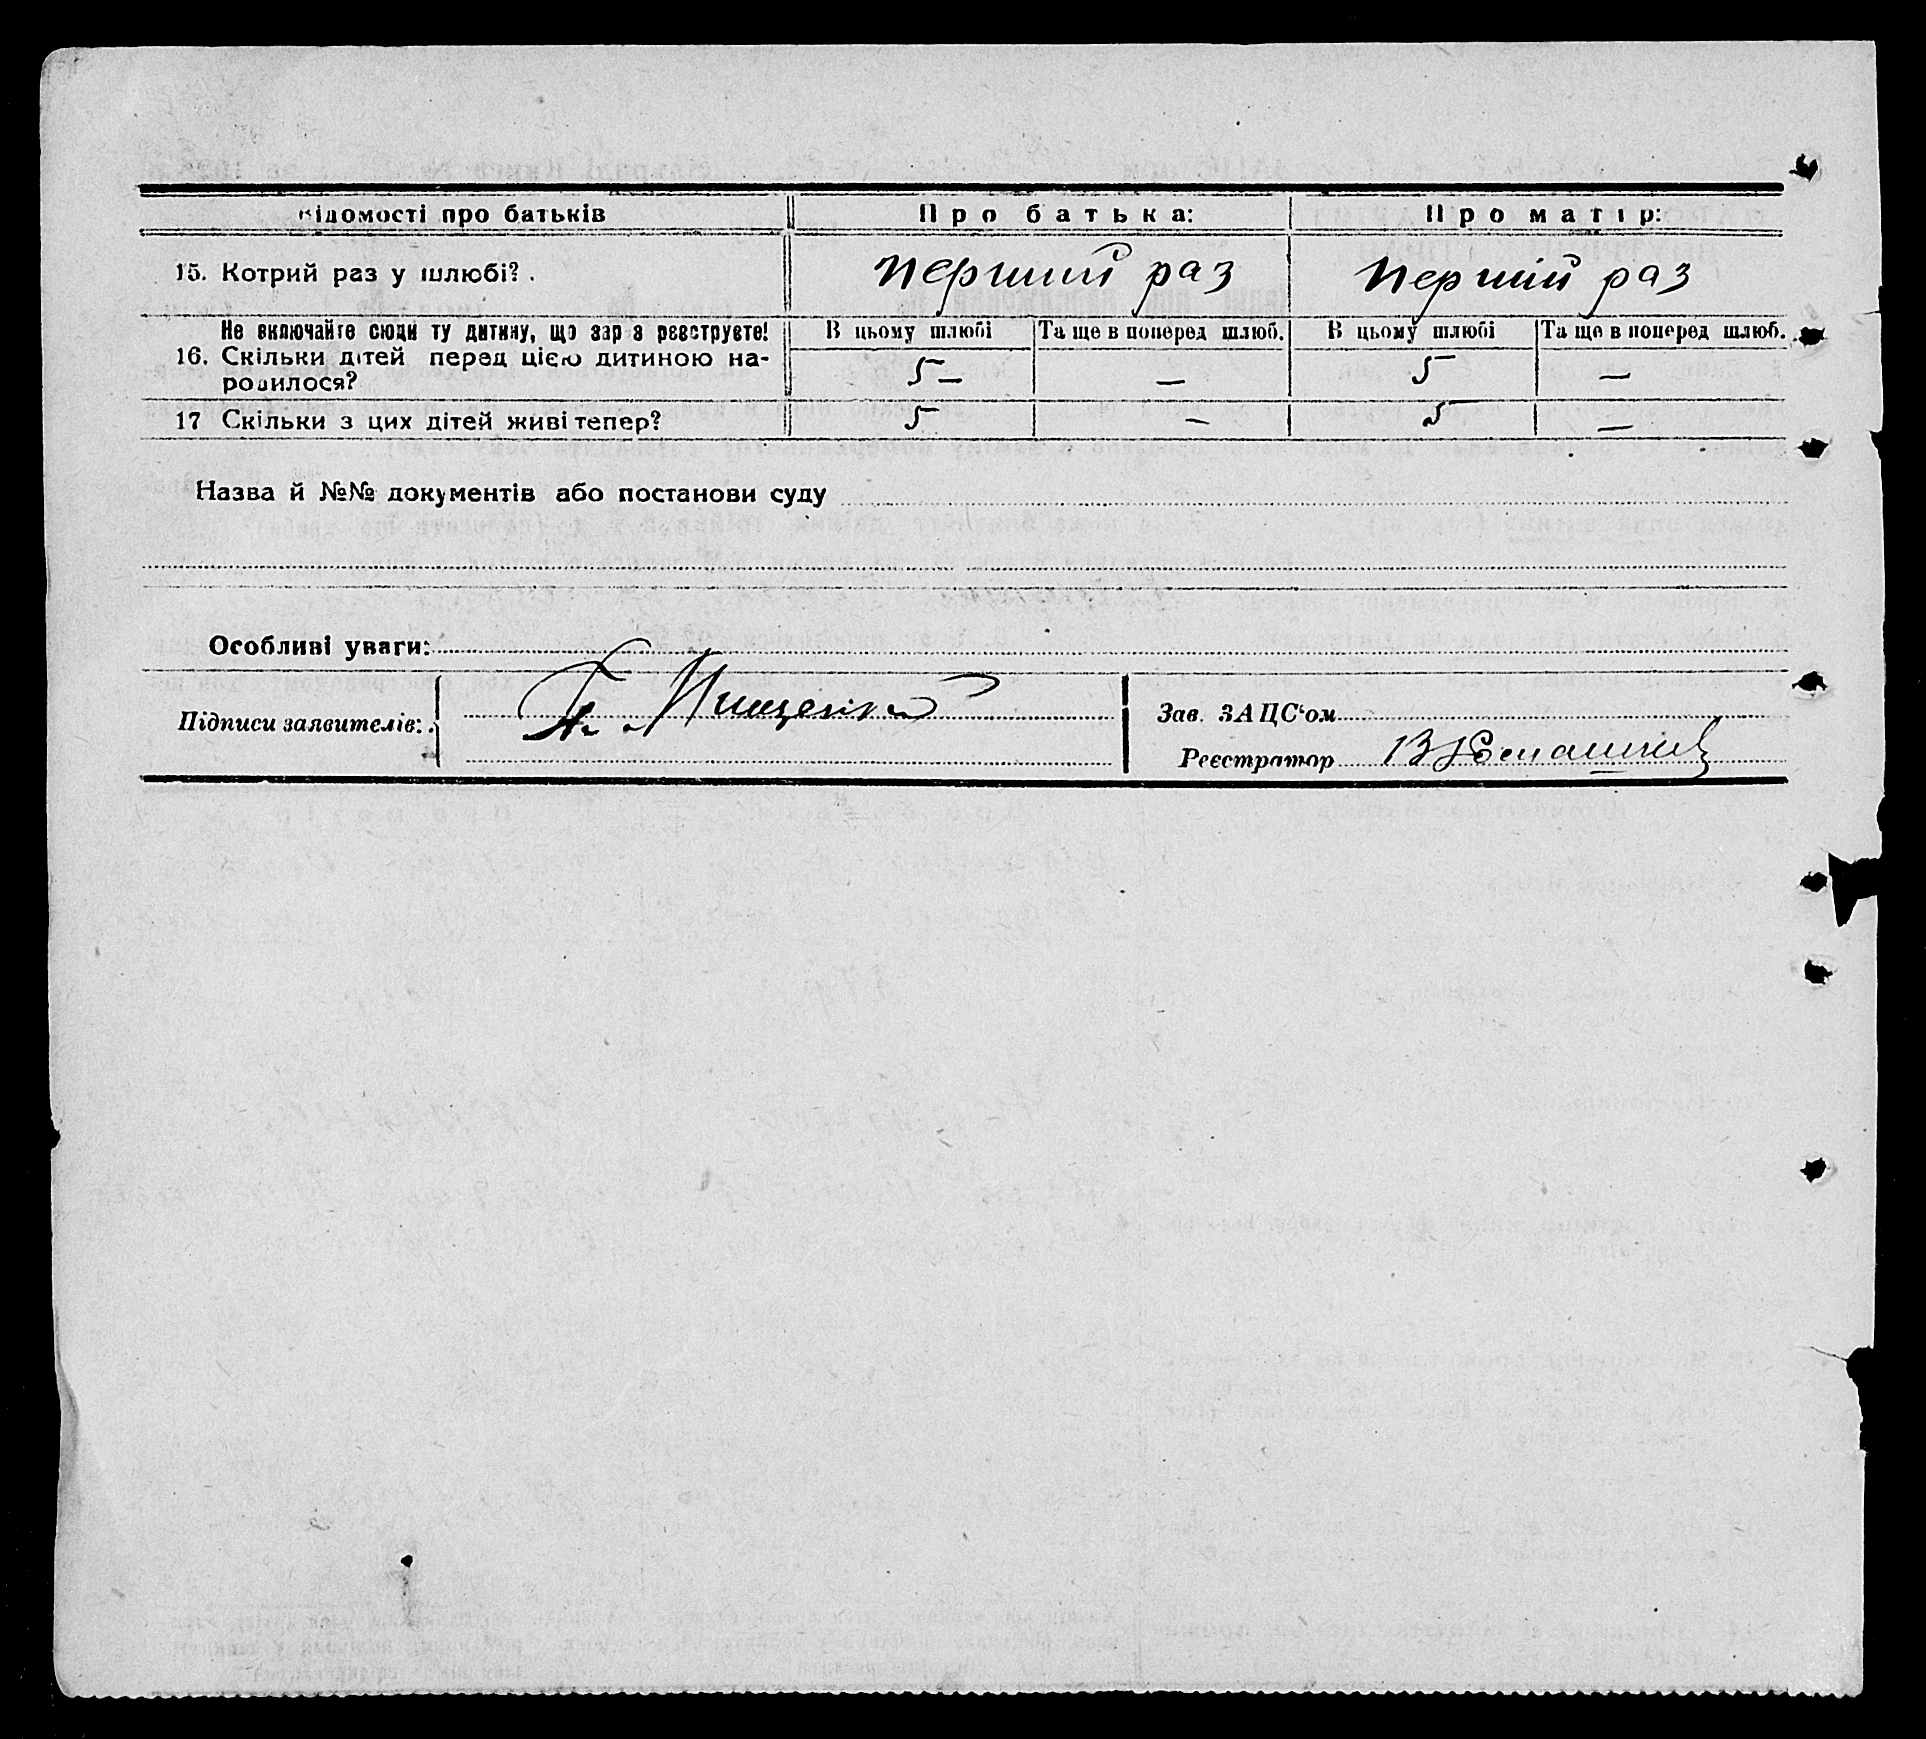 Відомості про батьків Про батька: Про матір:
15. Котрий раз у шлюбі? . перший раз перший раз
Не включайте сюди ту дитину, що зараз реєструєте! В цьому шлюбі Та ще в поперед шлюб. В цьому шлюбі Та ще в поперед шлюб.
16. Скільки дітей перед цією дитиною на-
родилося? 5 – — 5 —
17 Скільки з цих дітей живі тепер? 5 – 5 —
Назва й №№ документів або постанови суду
Особливі уваги:
Підписи заявителів: Мищенко
Зав. ЗАЦС‘ом
Реєстратор